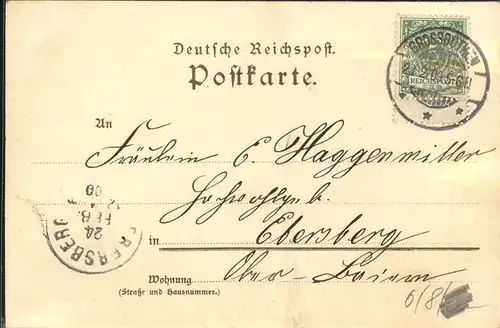 Deutsche Reichspost.
Postkarte.
GROSSBOTHEN
REICHSPOST
An
Fräulein E. Haggenmiller
Hochwohlgeb.
in Ebersberg
Wohnung Ober-Baiern
(Straße und Hausnummer.)
EBERSBERG
24
FEB.
00
6/8/